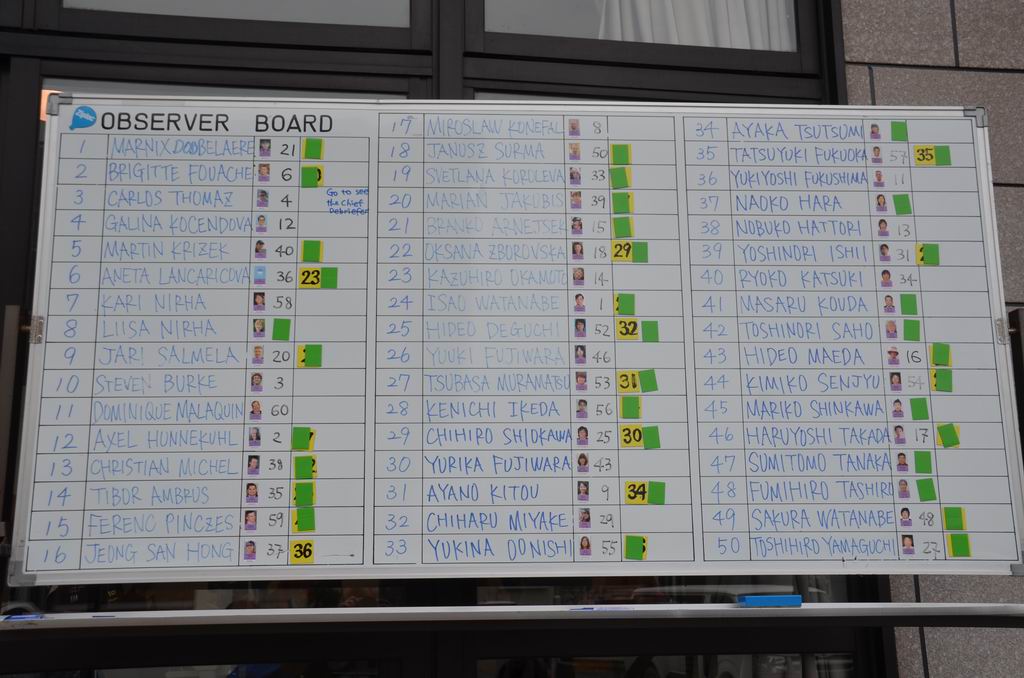 OBSERVER BOARD
1 MARNIX DOOBELAERE 21
2 BRIGITTE FOUACHE 6
3 CARLOS THOMAZ 4 Go to see the Chief Debriefer
4 GALINA KOCENDOVA 12
5 MARTIN KRIZEK 40
6 ANETA LANCARICOVA 36 23
7 KARI NIRHA 58
8 LIISA NIRHA
9 JARI SALMELA 20
10 STEVEN BURKE 3
11 DOMINIQUE MALAQUIN 60
12 AXEL HUNNEKUHL 2
13 CHRISTIAN MICHEL 38
14 TIBOR AMBRUS 35
15 FERENC PINCZES 59
16 JEONG SAN HONG 37 36
17 MIROSLAW KONEFAL 8
18 JANUSZ SURMA 50
19 SVETLANA KOROLEVA 33
20 MARIAN JAKUBIS 39
21 BRANKO ARNETSEK 15
22 OKSANA ZBOROVSKA 18 29
23 KAZUHIRO OKAMOTO 14
24 ISAO WATANABE 1
25 HIDEO DEGUCHI 52 32
26 YUUKI FUJIWARA 46
27 TSUBASA MURAMATSU 53 31
28 KENICHI IKEDA 56
29 CHIHIRO SHIOKAWA 25 30
30 YURIKA FUJIWARA 43
31 AYANO KITOU 9 34
32 CHIHARU MIYAKE 29
33 YUKINA OONISHI 55
34 AYAKA TSUTSUMI
35 TATSUYUKI FUKUOKA 57 35
36 YUKIYOSHI FUKUSHIMA 11
37 NAOKO HARA
38 NOBUKO HATTORI 13
39 YOSHINORI ISHII 31
40 RYOKO KATSUKI 34
41 MASARU KOUDA
42 TOSHINORI SAHO
43 HIDEO MAEDA 16
44 KIMIKO SENJYU 54
45 MARIKO SHINKAWA
46 HARUYOSHI TAKADA 17
47 SUMITOMO TANAKA
48 FUMIHIRO TASHIRO
49 SAKURA WATANABE 48
50 TOSHIHIRO YAMAGUCHI 27